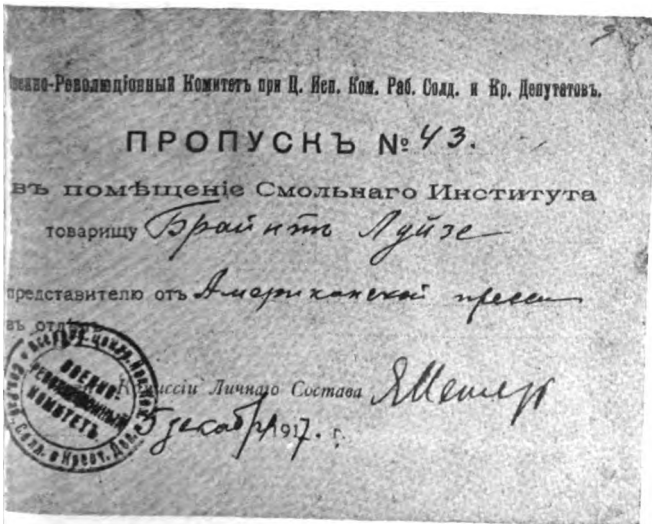 Военно-Революціонный Комитетъ при Ц. Исп. Ком. Раб. Солд. и Кр. Депутатовъ.
ПРОПУСКЪ № 43.
въ помѣщеніе Смольнаго Института
товарищу Брайнтъ Луйзе
представителю отъ Американской прессы
въ отдѣлъ
Комиссіи Личнаго Состава
5 декабря 1917. г.
ВОЕННО-
РЕВОЛЮЦІОННЫЙ
КОМИТЕТЪ